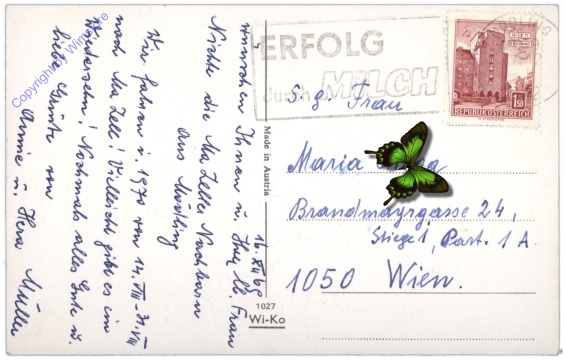 wünschen Ihnen u. Ihrer lb. Frau
Nichte die Ma Zeller Nachbarn
aus Mödling
Wir fahren i. 1970 von 14. VIII - 31. VIII
nach Ma Zell! Vielleicht gibt es ein
Wiedersehn! Nochmals alles Gute u.
liebe Grüße von
Annie u. Hera Müller
16. XII 69
Made in Austria
1027
Wi-Ko
ERFOLG
durch MILCH
1.50
REPUBLIK ÖSTERREICH
S. g. Frau
Maria
Brandmayrgasse 24,
Stiege 1, Part. 1 A.
1050 Wien.